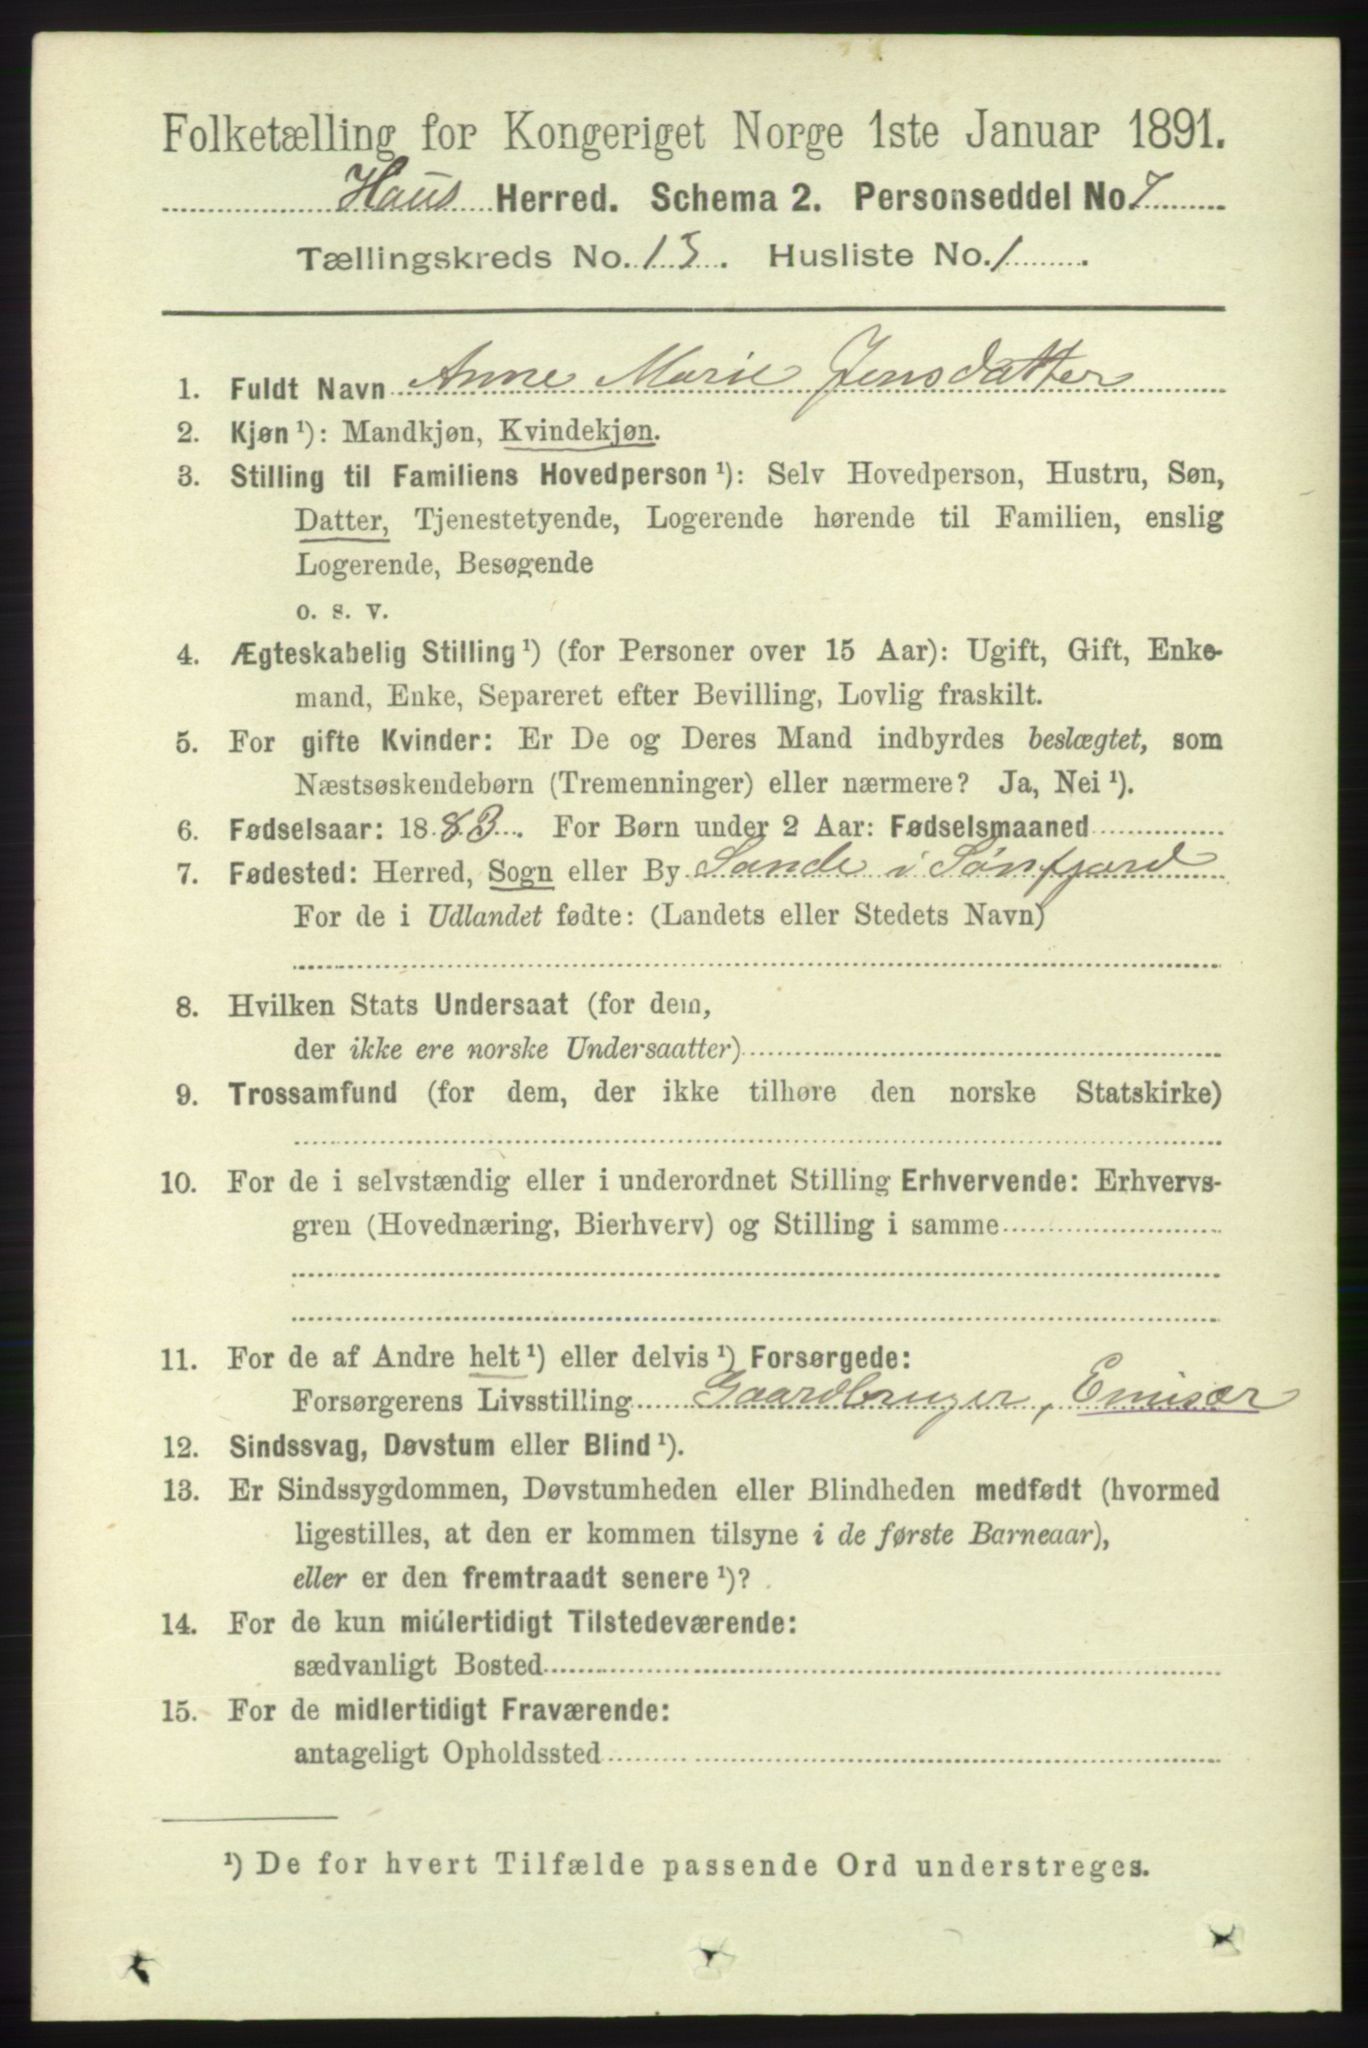 Folketælling for Kongeriget Norge 1ste Januar 1891.
Haus Herred. Schema 2. Personseddel No. 7
Tællingskreds No. 13. Husliste No. 1.
1. Fuldt Navn Anne Marie Jensdatter
2. Kjøn ¹): Mandkjøn, Kvindekjøn.
3. Stilling til Familiens Hovedperson ¹): Selv Hovedperson, Hustru, Søn,
Datter, Tjenestetyende, Logerende hørende til Familien, enslig
Logerende, Besøgende
o. s. v.
4. Ægteskabelig Stilling ¹) (for Personer over 15 Aar): Ugift, Gift, Enke-
mand, Enke, Separeret efter Bevilling, Lovlig fraskilt.
5. For gifte Kvinder: Er De og Deres Mand indbyrdes beslægtet, som
Næstsøskendebørn (Tremenninger) eller nærmere? Ja, Nei ¹).
6. Fødselsaar: 1883. For Børn under 2 Aar: Fødselsmaaned
7. Fødested: Herred, Sogn eller By Sande i Sønfjord
For de i Udlandet fødte: (Landets eller Stedets Navn)
8. Hvilken Stats Undersaat (for dem,
der ikke ere norske Undersaatter)
9. Trossamfund (for dem, der ikke tilhøre den norske Statskirke)
10. For de i selvstændig eller i underordnet Stilling Erhvervende: Erhvervs-
gren (Hovednæring, Bierhverv) og Stilling i samme
11. For de af Andre helt ¹) eller delvis ¹) Forsørgede:
Forsørgerens Livsstilling Gaardbruger, Emisær
12. Sindssvag, Døvstum eller Blind ¹).
13. Er Sindssygdommen, Døvstumheden eller Blindheden medfødt (hvormed
ligestilles, at den er kommen tilsyne i de første Barneaar),
eller er den fremtraadt senere ¹)?
14. For de kun midlertidigt Tilstedeværende:
sædvanligt Bosted
15. For de midlertidigt Fraværende:
antageligt Opholdssted
¹) De for hvert Tilfælde passende Ord understreges.